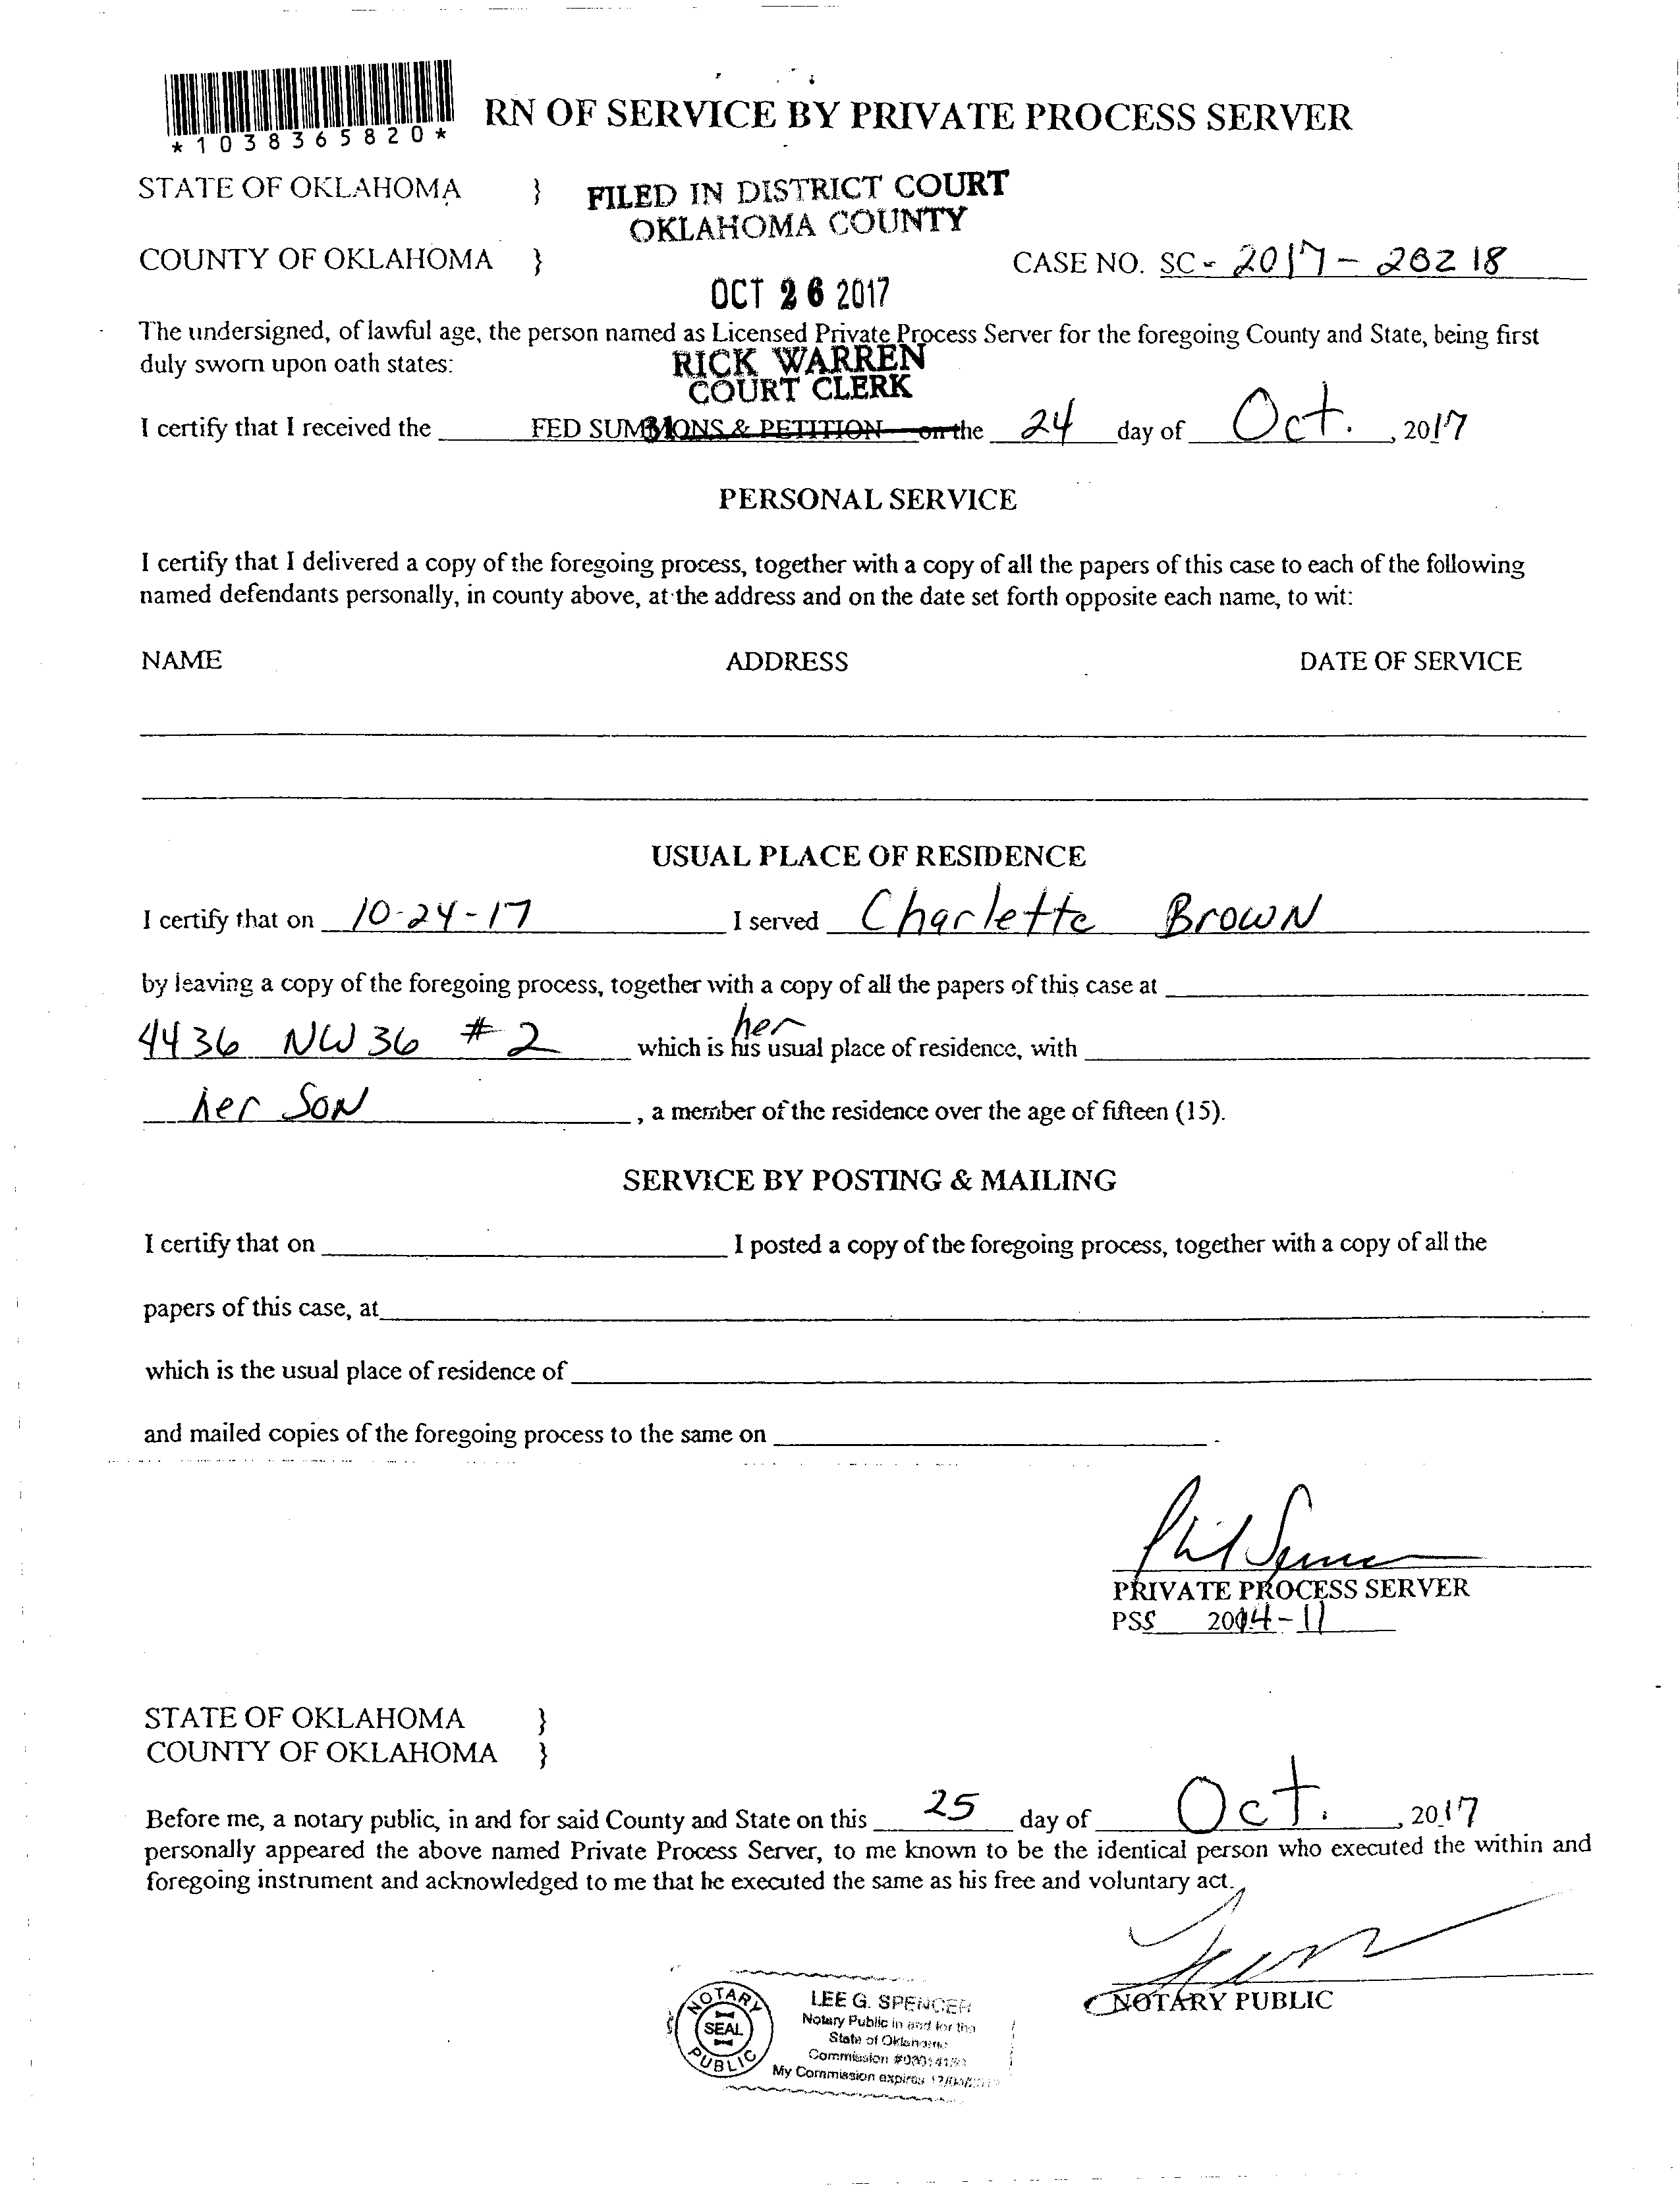 *1038365820*
RN OF SERVICE BY PRIVATE PROCESS SERVER
STATE OF OKLAHOMA }
FILED IN DISTRICT COURT
OKLAHOMA COUNTY
COUNTY OF OKLAHOMA }
CASE NO. SC - 2017 - 20218
OCT 26 2017
The undersigned, of lawful age, the person named as Licensed Private Process Server for the foregoing County and State, being first
duly sworn upon oath states:
RICK WARREN
COURT CLERK
I certify that I received the FED SUMMONS & PETITION on the 24 day of Oct. , 2017
PERSONAL SERVICE
I certify that I delivered a copy of the foregoing process, together with a copy of all the papers of this case to each of the following
named defendants personally, in county above, at the address and on the date set forth opposite each name, to wit:
NAME ADDRESS DATE OF SERVICE
USUAL PLACE OF RESIDENCE
I certify that on 10-24-17 I served Charlette Brown
by leaving a copy of the foregoing process, together with a copy of all the papers of this case at
her
4436 NW 36 # 2 which is his usual place of residence, with
her SON , a member of the residence over the age of fifteen (15).
SERVICE BY POSTING & MAILING
I certify that on I posted a copy of the foregoing process, together with a copy of all the
papers of this case, at
which is the usual place of residence of
and mailed copies of the foregoing process to the same on .
PRIVATE PROCESS SERVER
PSS 2014-11
STATE OF OKLAHOMA }
COUNTY OF OKLAHOMA }
Before me, a notary public, in and for said County and State on this 25 day of Oct. , 2017
personally appeared the above named Private Process Server, to me known to be the identical person who executed the within and
foregoing instrument and acknowledged to me that he executed the same as his free and voluntary act.
NOTARY PUBLIC
NOTARY
SEAL
PUBLIC
LEE G. SPENCER
Notary Public in and for the
State of Oklahoma
Commission
My Commission expires